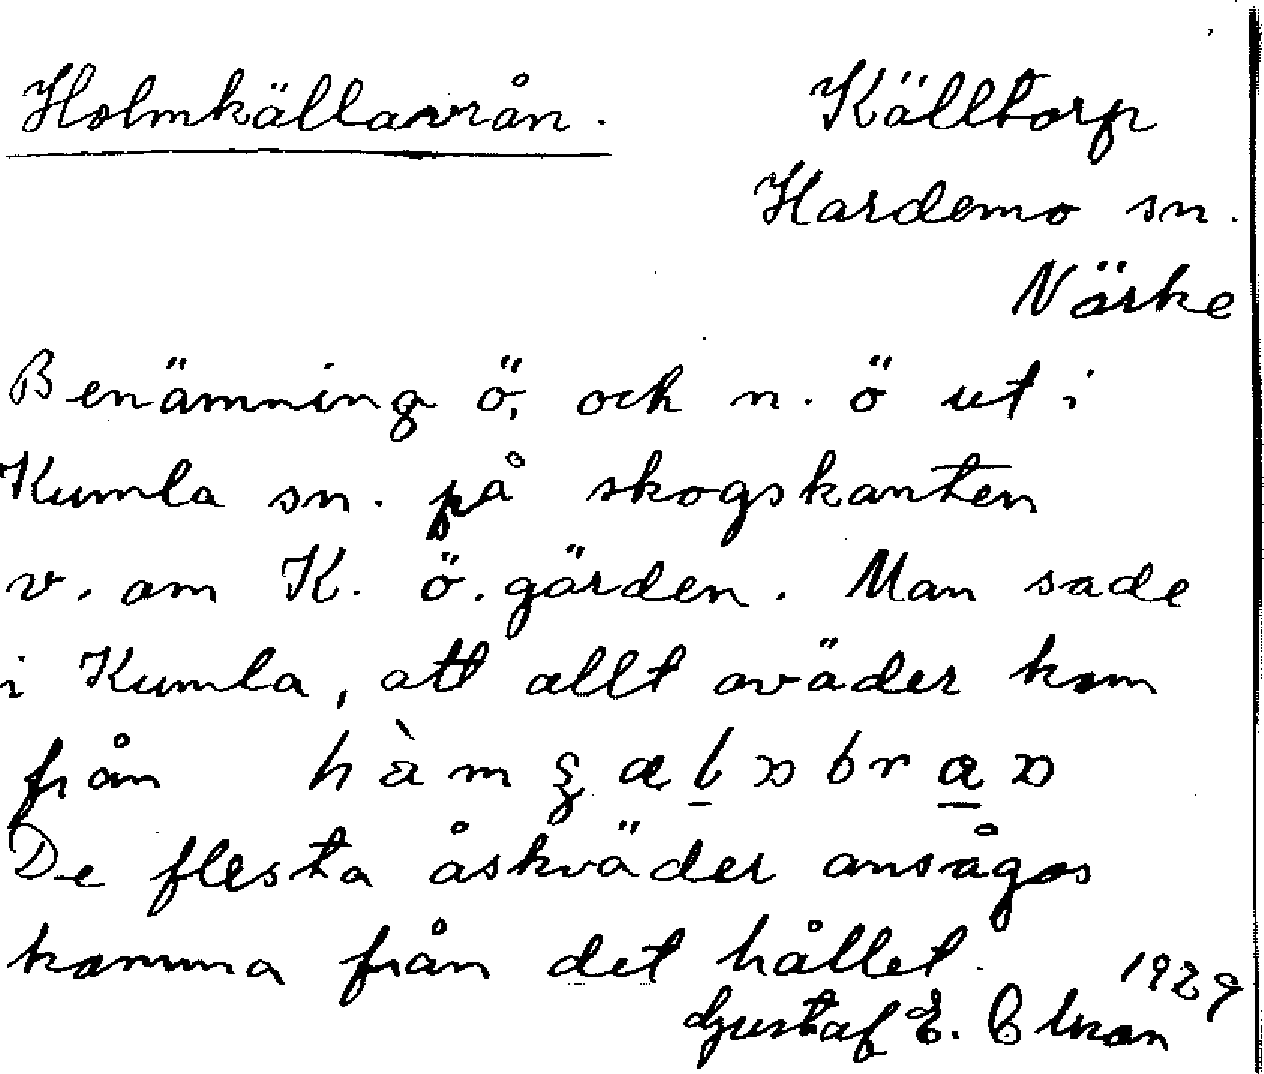 Holmkällavrån.
Källtorp
Hardemo sn.
Närke
Benämning ö, och n. ö ut i
Kumla sn. på skogskanten
v. om K. ö. gärden. Man sade
i Kumla, att allt oväder kom
från
De flesta åskväder ansågos
komma från det hållet.
1929
Gustaf E.